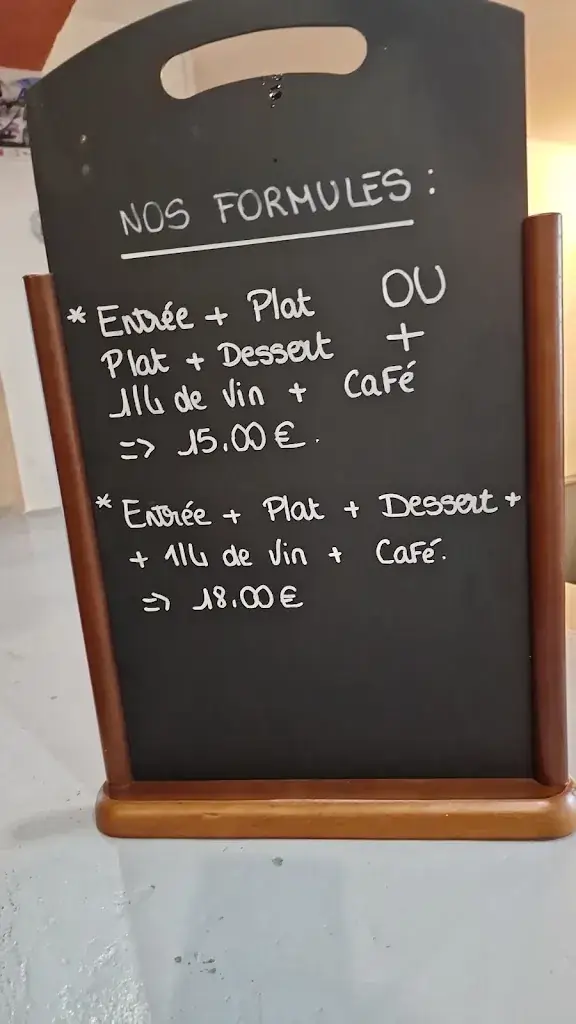 NOS FORMULES :
* Entrée + Plat OU
Plat + Dessert +
1/4 de vin + CaFé
=> 15.00€.
* Entrée + Plat + Dessert +
+ 1/4 de vin + CaFé.
=> 18.00€